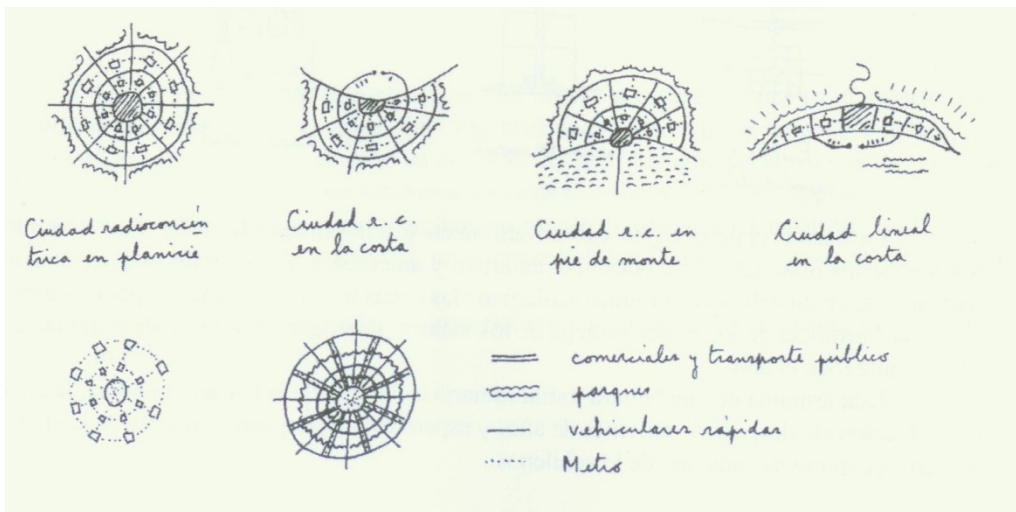 Ciudad radioconcén
trica en planicie
Ciudad r.c.
en la costa
Ciudad r.c. en
pie de monte
Ciudad lineal
en la costa
comerciales y transporte público
parques
vehiculares rápidas
Metro